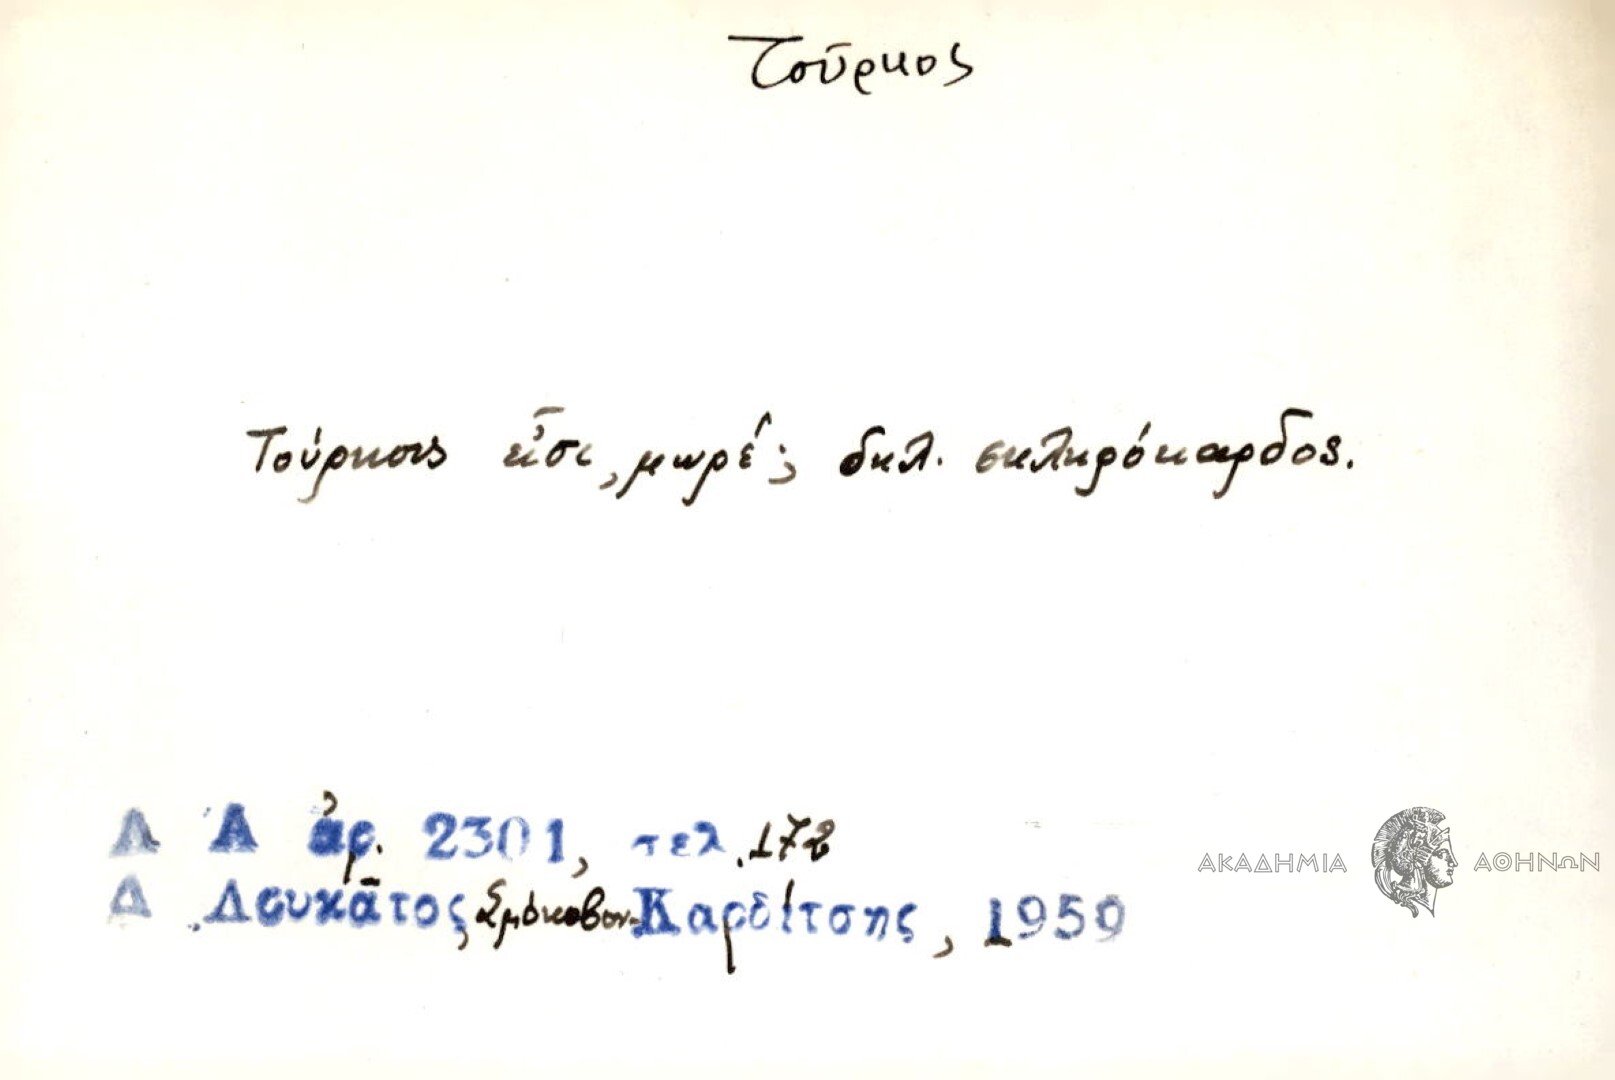 Τοῦρκος
Τούρκος εἶσι, μωρέ; δηλ. σκληρόκαρδος.
Λ Α ἀρ. 2301, τελ. 172
Δ. Λουκᾶτος, Σμόκοβον-Καρδίτσης, 1959
ΑΚΑΔΗΜΙΑ ΑΘΗΝΩΝ